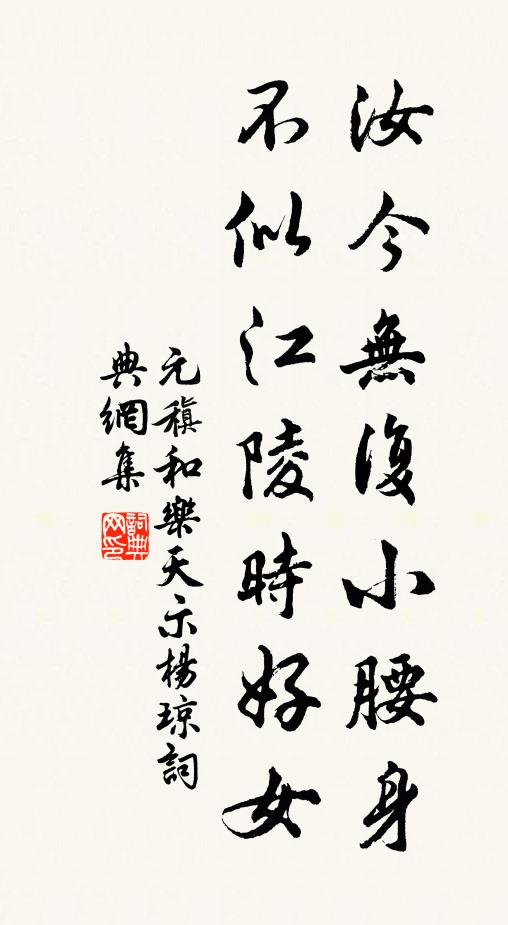 汝今無復小腰身
不似江陵時好女
元稹和樂天示楊瓊詞
典網集
詞典網印